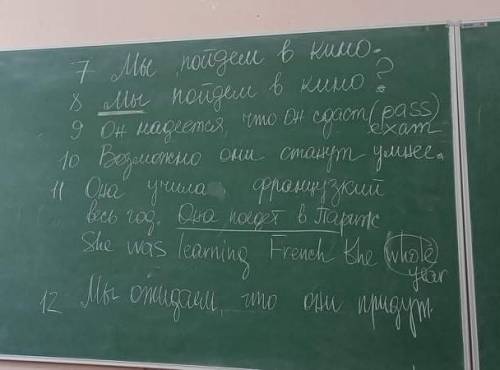 7 Мы пойдем в кино.
8 Мы пойдем в кино?
9 Он надеется, что он сдаст (pass)
exam
10 Возможно они станут умнее.
11 Она учила французкий
весь год. Она поедет в Париж
She was learning French the whole
year
12 Мы ожидаем, что они придут.